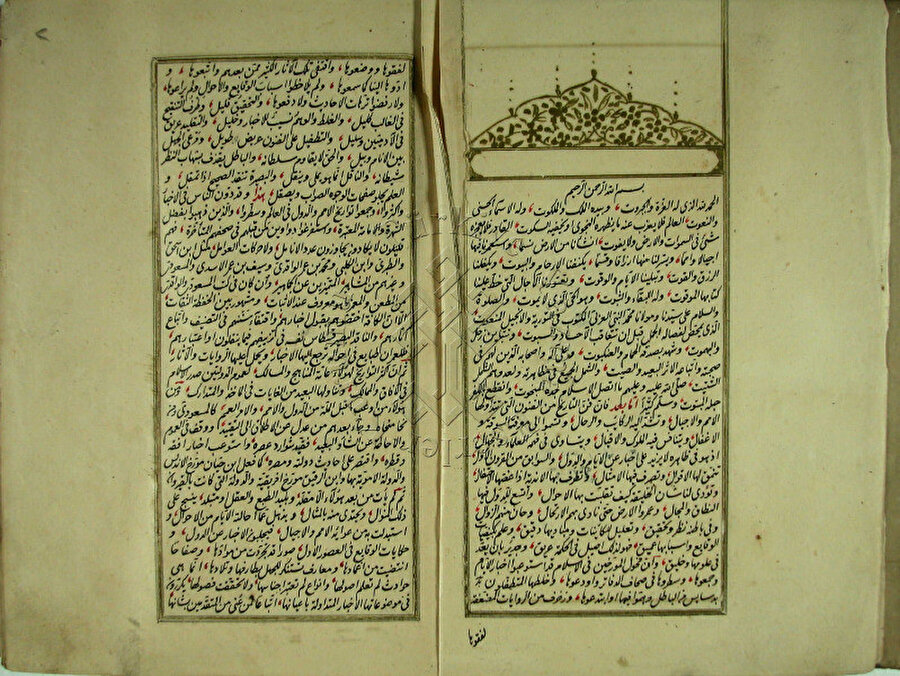 بسم الله الرحمن الرحيم
الحمد لله الذى له العزة والجبروت وبيده الملك والملكوت وله الاسماء الحسنى
والنعوت العالم فلا يعزب عنه ما يظهره النجوى ويخفيه السكوت القادر فلا يعجزه
شئ فى السموات والارض ولا يفوت انشأنا من الارض نسما واستعمرنا فيها
اجيالا وامما ويسر لنا منها ارزاقا وقسما يكنفنا الارحام والبيوت ويكفلنا
الرزق والقوت وتبلينا الايام والوقوت وتعتورنا الآجال التى خط علينا
كتابها الموقوت وله البقاء والثبوت وهو الحى الذى لا يموت والصلوة
والسلام على سيدنا ومولانا محمد النبى العربى المكتوب فى التورية والانجيل المنعوت
الذى تمحض لفصاله قبل ان تتعاقب الآحاد والسبوت ويتباين زحل
واليهموت وشهد بصدقه الحمام والعنكبوت وعلى آله واصحابه الذين لهم فى
صحبته واتباعه الاثر البعيد والصيت والشمل الجميع فى مظاهرته ولعدوهم الشمل
الشتيت صلى الله عليه وعليهم ما اتصل الاسلام جده المبخوت وانقطع بالكفر
حبله المبتوت وسلم كثيرا اما بعد فان فن التاريخ من الفنون التى تتداولها
الامم والاجيال وتشد اليه الركائب والرحال وتسموا الى معرفته السوقة و
الاغفال ويتنافس فيه الملوك والاقيال ويتساوى فى فهمه العلماء والجهال
اذ هو فى ظاهره لا يزيد على اخبار عن الايام والدول والسوابق من القرون الاول
تنمق لها الاقوال وتصرف فيها الامثال وتطرف بها الاندية اذا غصها الاحتفال
وتؤدى لنا شان الخليقة كيف تقلبت بها الاحوال واتسع للدول فيها
النطاق والمجال وعمروا الارض حتى نادى بهم الارتحال وحان منهم الزوال
وفى باطنه نظر وتحقيق وتعليل للكائنات ومباديها دقيق وعلم بكيفيات
الوقايع واسبابها عميق فهو لذلك اصيل فى الحكمة عريق وجدير بان يعد
فى علومها وخليق وان فحول المؤرخين فى الاسلام قد استوعبوا اخبار الايام
وجمعوها وسطروها فى صحائف الدفاتر واودعوها وخلطها المتطفلون
بدسايس من الباطل وهموا فيها وابتدعوها وزخرف من الروايات المضعفة
لفقوها
لفقوها ووضعوها واقتفى تلك الآثار الكثير ممن بعدهم واتبعوها و
ادوها الينا كما سمعوها ولم يلاحظوا اسباب الوقايع والاحوال ولم يراعوها
ولا رفضوا ترهات الاحاديث ولا دفعوها والتحقيق قليل وطرف التنقيح
فى الغالب كليل والغلط والوهم نسيب للاخبار وخليل والتقليد عريق
فى الآدميين وسليل والتطفيل على الفنون عريض وطويل ومرعى الجهل
بين الانام وبيل والحق لا يقاوم سلطانه والباطل يقذف بشهاب النظر
شيطانه والناقل انما هو يملى وينقل والبصيرة تنقد الصحيح اذا تمقل و
العلم يجلو صفحات الوجوه الصواب ويصقل هذا وقد دون الناس فى الاخبار
واكثروا وجمعوا تواريخ الامم والدول فى العالم وسطروا والذين ذهبوا بفضل
الشهرة والامامة المعتبرة واستفرغوا دواوين من قبلهم فى صحفهم المتاخرة هم
قليلون لا يكادون يجاوزون عدد الانامل ولا حركات العوامل مثل ابن اسحق
والطبرى وابن الكلبى ومحمد بن عمر الواقدى وسيف بن عمر الاسدى والمسعودى
وغيرهم من المشاهير المتميزين عن الجماهير وان كان فى كتب المسعودى والواقدى
من المطعن والمغمز ما هو معروف عند الاثبات ومشهور بين الحفظة الثقات
الا ان الكافة اختصوهم بقبول اخبارهم واقتفاء سننهم فى التصنيف واتباع
آثارهم والناقد البصير قسطاس نفسه فى تزييفهم فيما ينقلون واعتبارهم
فللعمران طبايع فى احواله ترجع اليها الاخبار وتحمل عليها الروايات والآثار
ثم ان اكثر التواريخ لهؤلاء عامة المناهج والمسالك لعموم الدولتين صدر الاسلام
فى الآفاق والممالك وتناولها البعيد من الغايات فى الماخذ والمتارك ومن
هؤلاء من استوعب ما قبل الملة من الدول والامم والامر العمم كالمسعودى ومن
نحا منحاه وجاء بعدهم من عدل عن الاطلاق الى التقييد ووقف فى العموم
والاحاطة عن الشأو البعيد فقيد شوارد عصره واستوعب اخبار افقه
وقطره واقتصر على احاديث دولته ومصره كما فعل ابن حيان مورخ الاندلس
والدولة الاموية بها وابن الرقيق مورخ افريقية والدول التى كانت بالقيروان
ثم لم يات من بعد هؤلاء الا مقلد وبليد الطبع والعقل ومتبلد ينسج على
ذلك المنوال ويحتذى منه بالمثال ويذهل عما احالته الايام من الاحوال و
استبدلت به من عوائد الامم والاجيال فيجلبون الاخبار عن الدول و
حكايات الوقايع فى العصور الاول صورا قد تجردت من موادها وصفاحا
انتضيت من اغمادها ومعارف تستنكر للجهل بطارفها وتلادها انما هى
حوادث لم تعلم اصولها وانواع لم تعتبر اجناسها ولا تحققت فصولها يكررون
فى موضوعاتها الاخبار المتداولة باعيانها اتباعا لمن عنى من المتقدمين بشانها